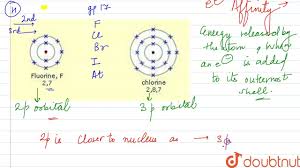 gp 17
2nd
3rd
F
Cl
Br
I
At
Fluorine, F
2,7
chlorine
2,8,7
2p orbital
3p orbital
Affinity
Energy released by
the atom, when
an e⁻ is added
to its outermost
shell.
2p is closer to nucleus as → 3p
doubtnut